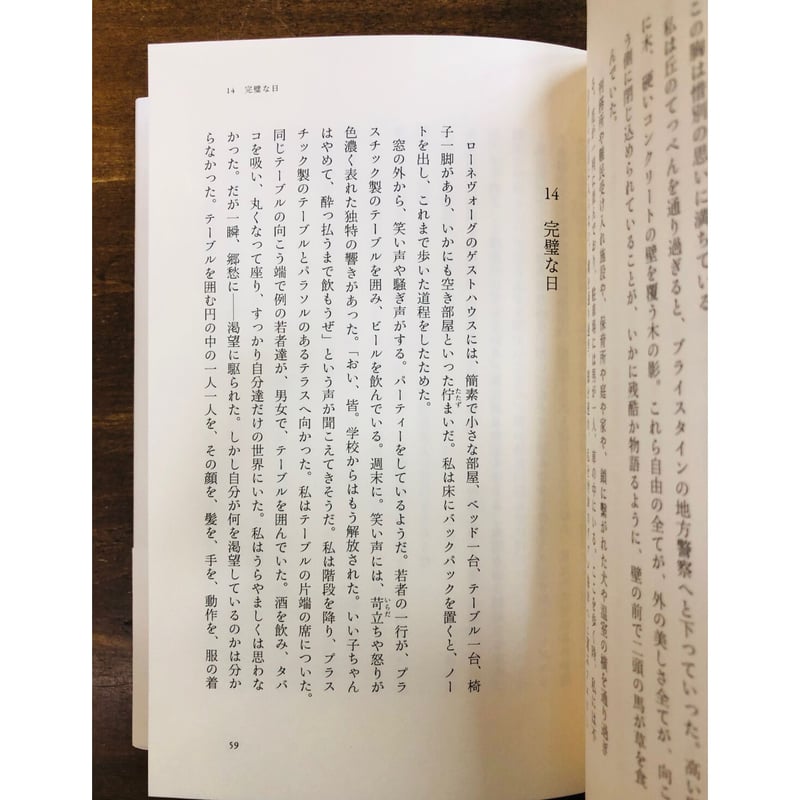 この胸は惜別の思いに満ちている
私は丘のてっぺんを通り過ぎると、ブライスタインの地方警察へと下っていった。高い
に木、硬いコンクリートの壁を覆う木の影。これら自由の全てが、外の美しさ全てが、向こ
う側に閉じ込められていることが、いかに残酷か物語るように、壁の前で二頭の馬が草を食
んでいた。
14 完璧な日
14 完璧な日
ローネヴォーグのゲストハウスには、簡素で小さな部屋、ベッド一台、テーブル一台、椅
子一脚があり、いかにも空き部屋といった佇まいだ。私は床にバックパックを置くと、ノー
トを出し、これまで歩いた道程をしたためた。
窓の外から、笑い声や騒ぎ声がする。パーティーをしているようだ。若者の一行が、プラ
スチック製のテーブルを囲み、ビールを飲んでいる。週末に。笑い声には、苛立ちや怒りが
色濃く表れた独特の響きがあった。「おい、皆。学校からはもう解放された。いい子ちゃん
はやめて、酔っ払うまで飲もうぜ」という声が聞こえてきそうだ。私は階段を降り、プラス
チック製のテーブルとパラソルのあるテラスへ向かった。私はテーブルの片端の席についた。
同じテーブルの向こう端で例の若者達が、男女で、テーブルを囲んでいた。酒を飲み、タバ
コを吸い、丸くなって座り、すっかり自分達だけの世界にいた。私はうらやましくは思わな
かった。だが一瞬、郷愁に――渇望に駆られた。しかし自分が何を渇望しているのかは分か
らなかった。テーブルを囲む円の中の一人一人を、その顔を、髪を、手を、動作を、服の着
59